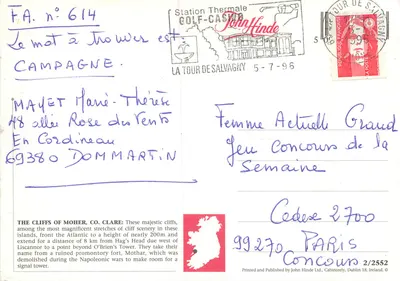 F.A. n° 614
Le mot à trouver est
CAMPAGNE.
MAYET Marie-Thérèse
48 allée Rose des Vents
En Cordineau
69380 DOMMARTIN
THE CLIFFS OF MOHER, CO. CLARE: These majestic cliffs,
among the most magnificent stretches of cliff scenery in these
islands, from the Atlantic to a height of nearly 200m and
extend for a distance of 8 km from Hag's Head due west of
Liscannor to a point beyond O'Brien's Tower. They take their
name from a ruined promontory fort, Mothar, which was
demolished during the Napoleonic wars to make room for a
signal tower.
Station Thermale
GOLF-CASINO
John Hinde
LA TOUR DE SALVAGNY 5-7-96
LA TOUR DE SALVAGNY
Femme Actuelle Grand
Jeu Concours de la
Semaine
Cedex 2700
99270 PARIS
Concours
2/2552
Printed and Published by John Hinde Ltd., Cabinteely, Dublin 18, Ireland.